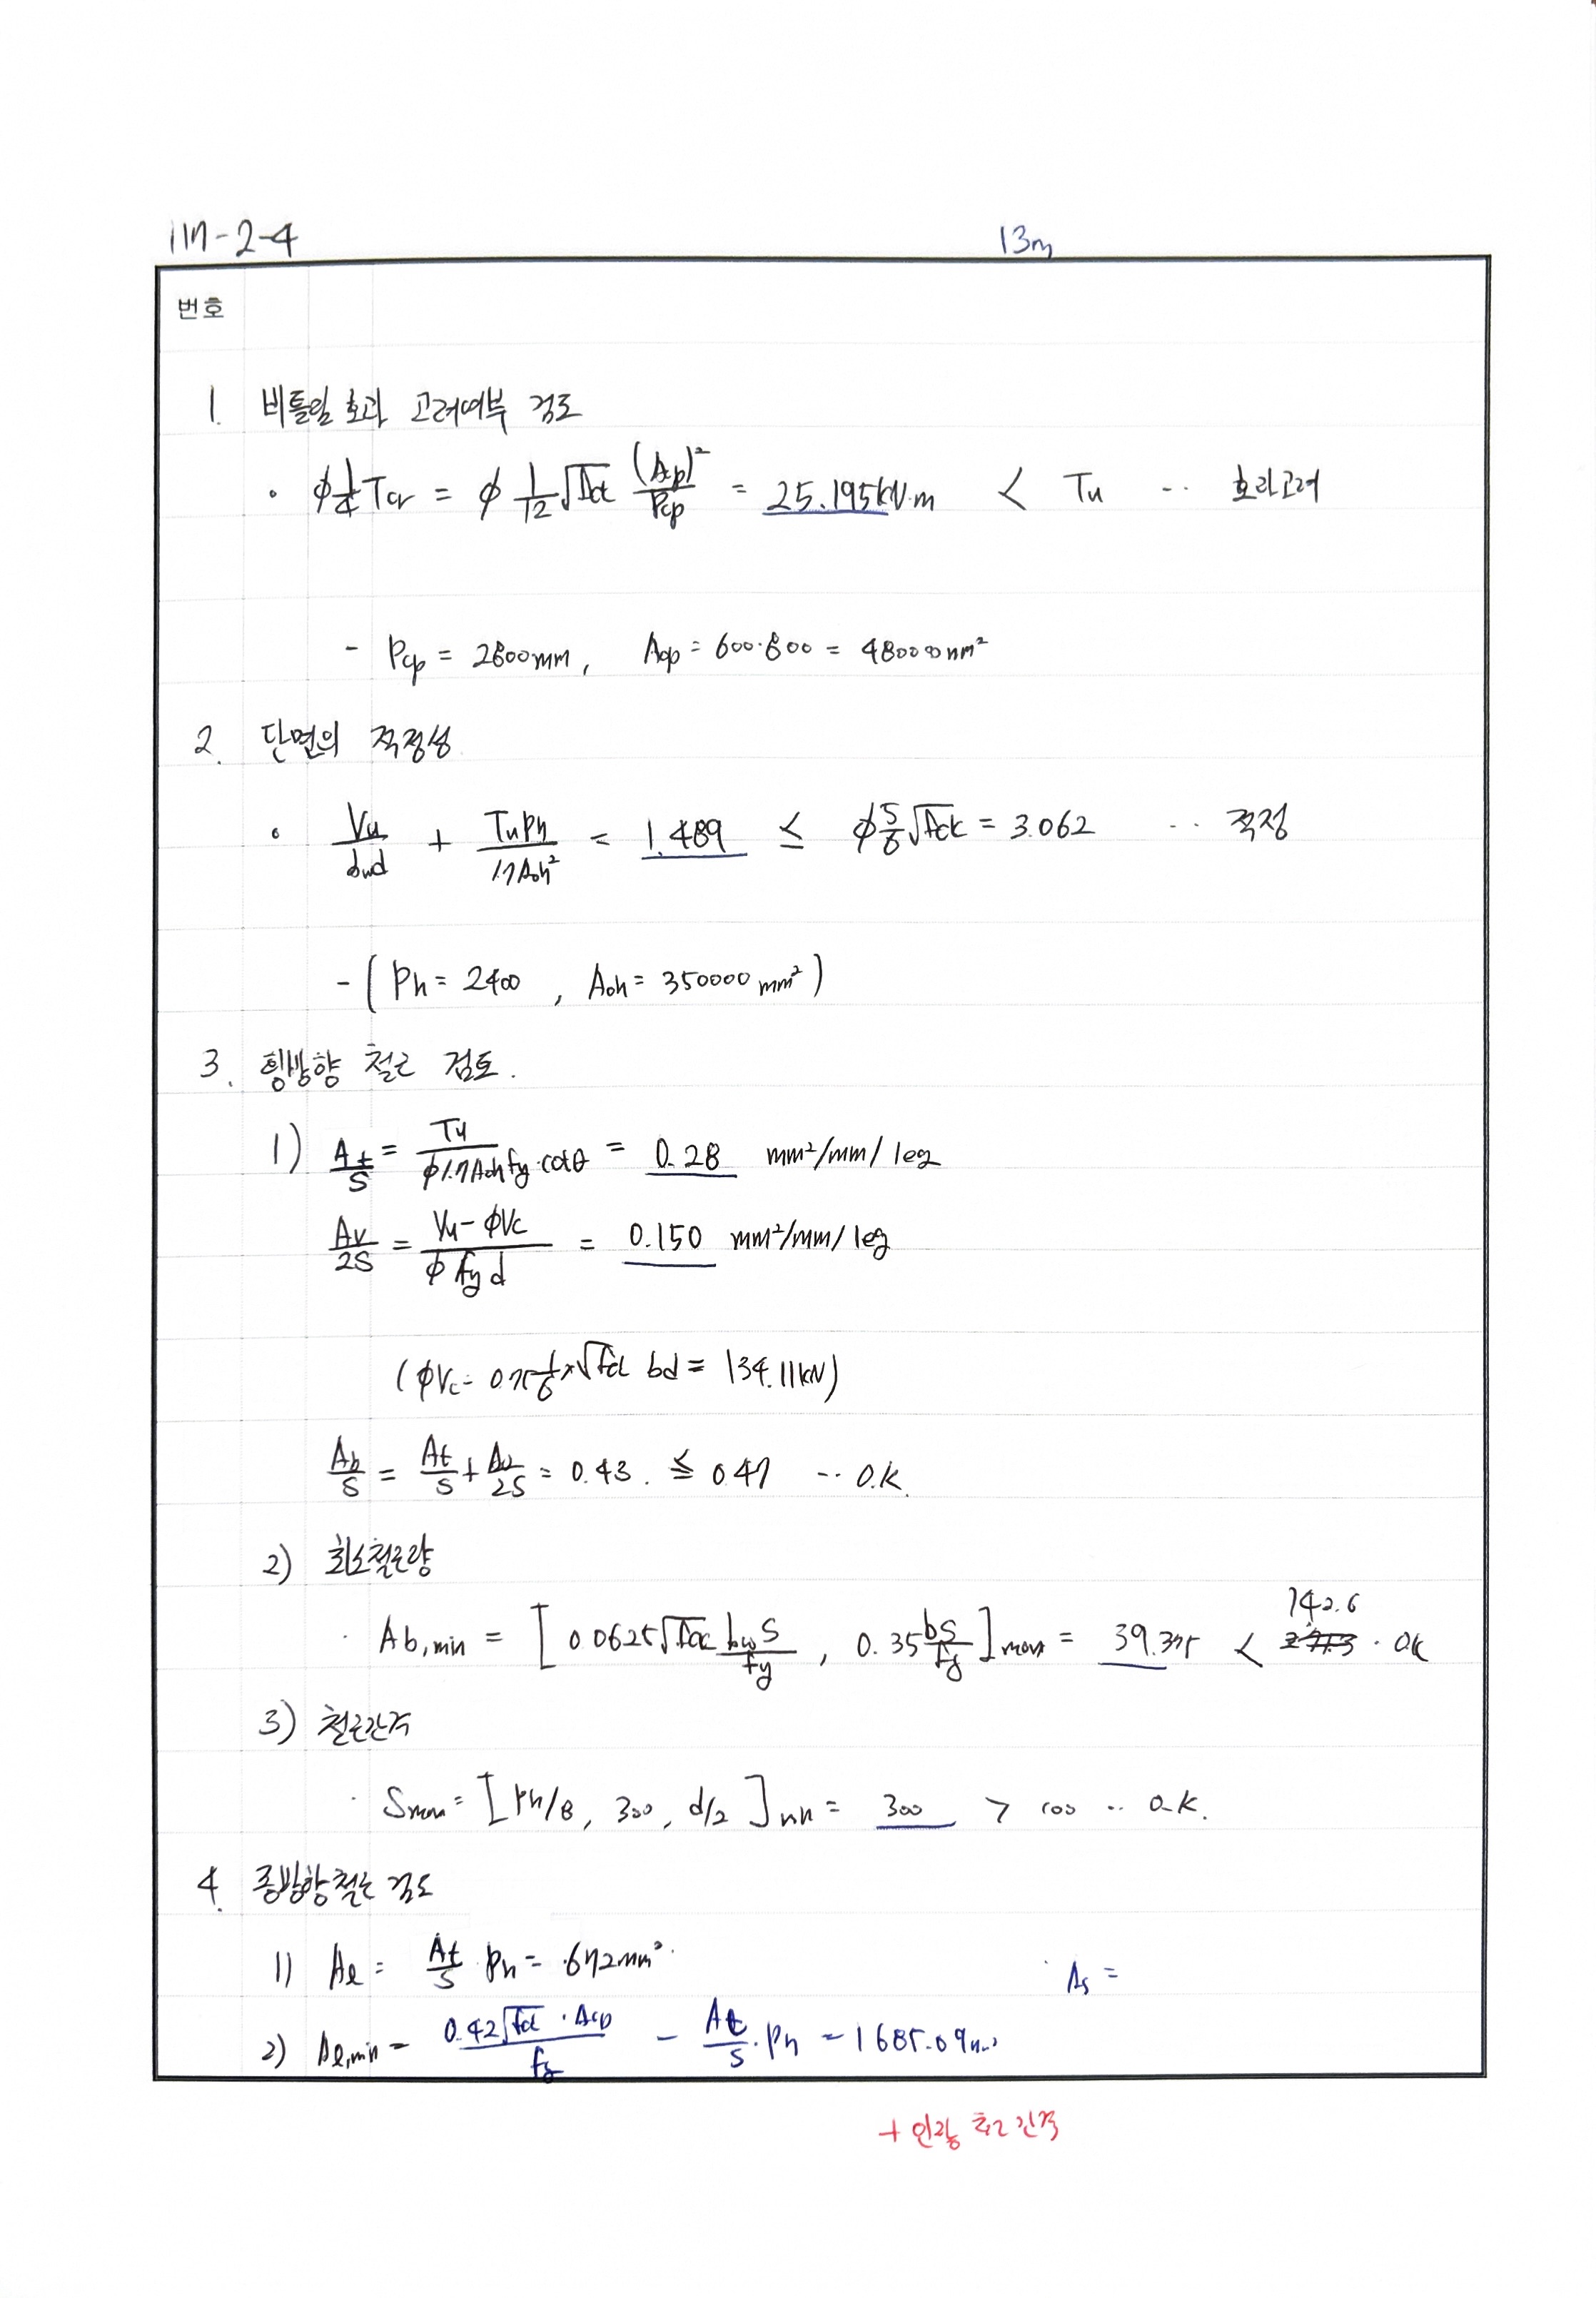 117-2-4
13m
번호
1. 비틀림 효과 고려여부 검토
· φ 1/4 Tcr = φ 1/12 √fck (Acp)²/Pcp = 25.195kN·m < Tu ‥ 효과고려
- Pcp = 2800mm, Acp = 600·800 = 480000mm²
2. 단면의 적정성
· Vu/bwd + TuPh/1.7Aoh² = 1.489 ≤ φ 5/6 √fck = 3.062 ‥ 적정
- (Ph = 2400, Aoh = 350000mm²)
3. 횡방향 철근 검토.
1) At/S = Tu/φ1.7Aoh fy·cotθ = 0.28 mm²/mm/leg
Av/2S = Vu-φVc/φ fy d = 0.150 mm²/mm/leg
(φVc = 0.75 1/6 × √fck bd = 134.11kN)
Ab/S = At/S + Av/2S = 0.43. ≤ 0.47 ‥ O.K.
2) 최소철근량
· Ab,min = [0.0625√fck bwS/fy, 0.35 bS/fy]max = 39.375 < 142.6 · OK
3) 철근간격
· Smax = [Ph/8, 300, d/2]min = 300 > 100 ‥ O.K.
4. 종방향철근 검토
1) Aℓ = At/S Ph = 672mm²
· As =
2) Aℓ,min = 0.42√fck · Acp/fy - At/S · Ph = 1685.09
+ 인장 철근 간격